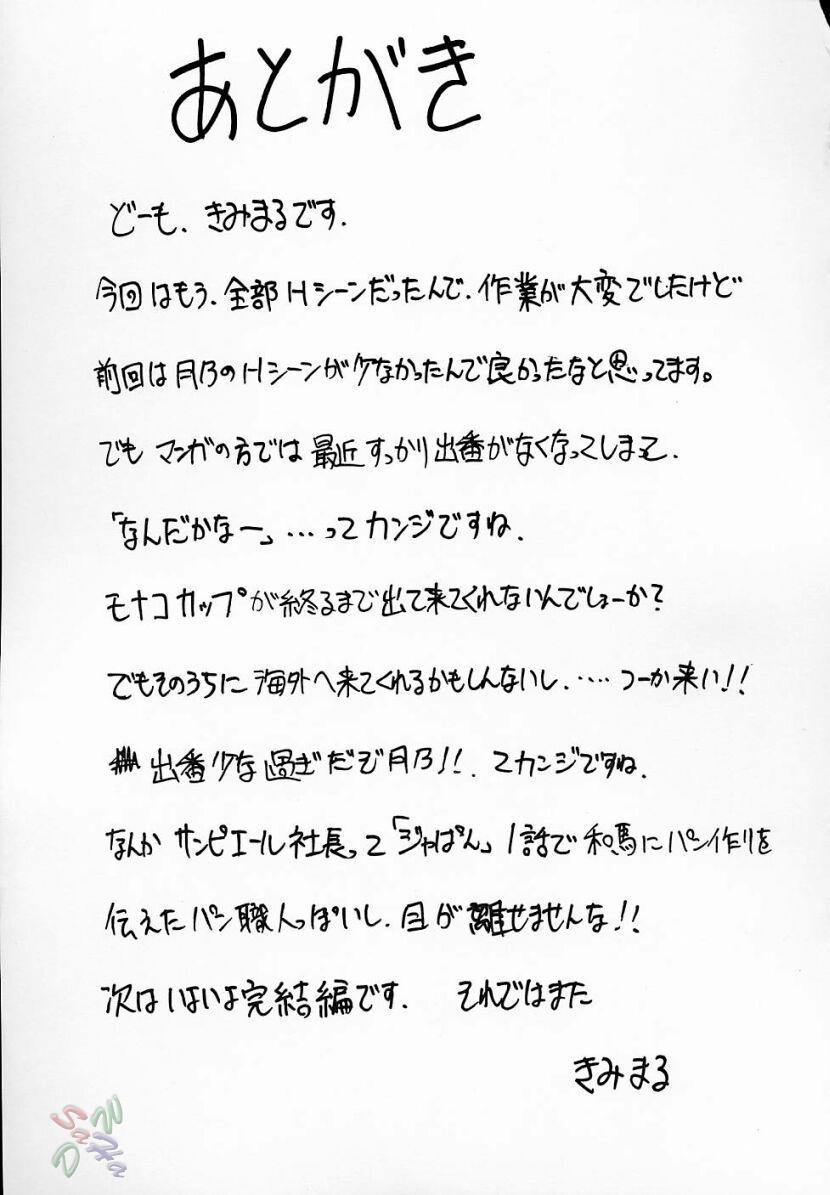 あとがき
どーも、きみまるです.
今回はもう、全部Hシーンだったんで、作業が大変でしたけど
前回は月乃のHシーンが少なかったんで良かったなと思ってます。
でも マンガの方では 最近すっかり出番がなくなってしまって、
「なんだかなー」…ってカンジですね、
モナコカップが終るまで出て来てくれないんでしょーか?
でもそのうちに 海外へ来てくれるかもしんないし、……つーか来い!!
出番少な過ぎだぞ月乃!!、てカンジですね、
なんか サンピエール社長って「ジャぱん」1話で 和馬にパン作りを
伝えたパン職人っぽいし、目が離せませんな!!
次はいよいよ完結編です. それではまた
きみまる
SaHa
DW